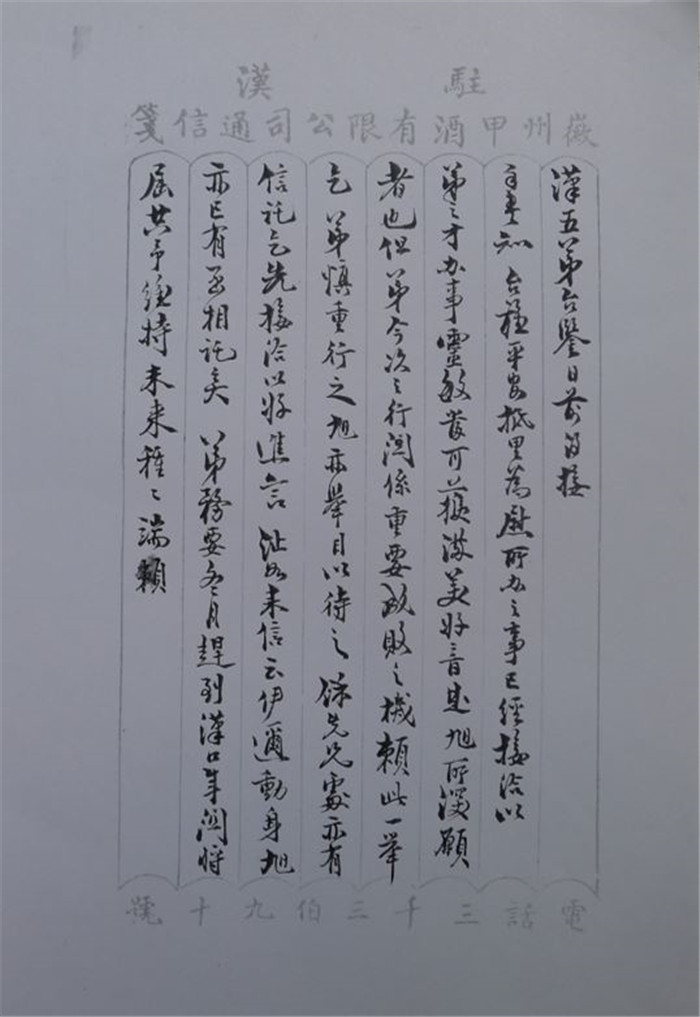 駐漢
徽州甲酒有限公司通信箋
漢五弟台鑒日前皆接
手書知台種平安抵里為慰所办之事已經接洽以
弟之才办事靈敏當可獲滿美好音是旭所深願
者也但弟今次之行関係重要成敗之機賴此一舉
乞弟慎重行之旭亦舉目以待之保先兄處亦有
信託乞先接洽以好進言沚如来信云伊邇動身旭
亦已有函相託矣弟務要冬月趕到漢口年関將
屆共予維持未来種之端賴
電話三千三伯九十號